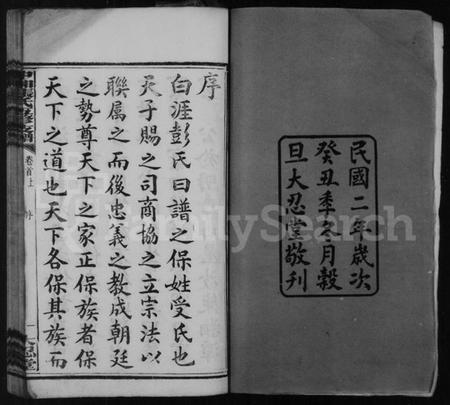 民國二年歲次
癸丑季冬月穀
旦大忍堂敬刊
序
白涯彭氏曰譜之保姓受氏也
天子賜之司商協之立宗法以
聯属之而後忠義之教成朝廷
之勢尊天下之家正保族者保
天下之道也天下各保其族而
卷首上 序
FamilySearch